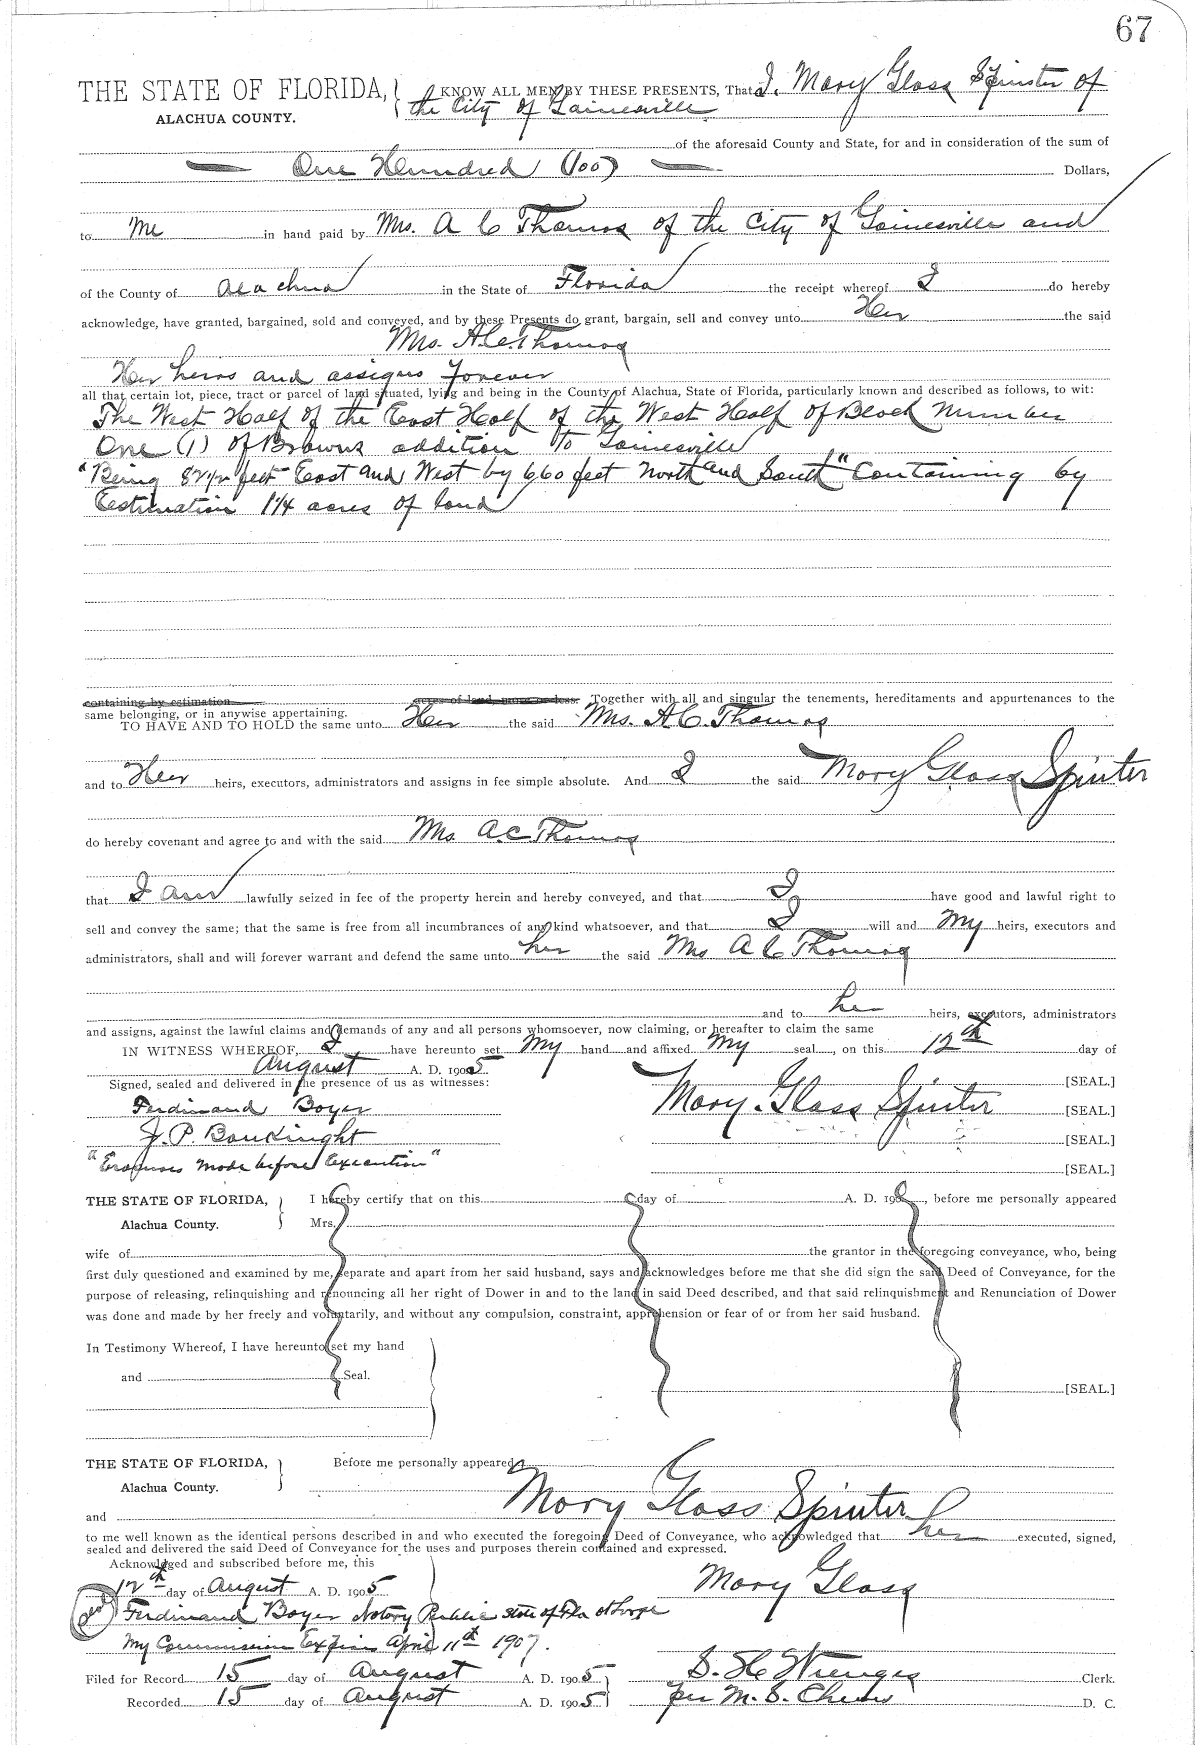 67
THE STATE OF FLORIDA, KNOW ALL MEN BY THESE PRESENTS, That I, Mary Glass Spinster of
ALACHUA COUNTY. the City of Gainesville
of the aforesaid County and State, for and in consideration of the sum of
One Hundred (100) Dollars,
to me in hand paid by Mrs. A C Thomas of the City of Gainesville and
of the County of Alachua in the State of Florida the receipt whereof I do hereby
acknowledge, have granted, bargained, sold and conveyed, and by these Presents do grant, bargain, sell and convey unto Her the said
Mrs. A.C. Thomas
Her heirs and assigns forever
all that certain lot, piece, tract or parcel of land situated, lying and being in the County of Alachua, State of Florida, particularly known and described as follows, to wit:
The West Half of the East Half of the West Half of Block Number
One (1) of Browns addition to Gainesville
"Being 82 1/2 feet East and West by 660 feet North and South" Containing by
Estimation 1 1/4 acres of land
containing by estimation acres of land, more or less. Together with all and singular the tenements, hereditaments and appurtenances to the
same belonging, or in anywise appertaining.
TO HAVE AND TO HOLD the same unto Her the said Mrs. A.C. Thomas
and to Her heirs, executors, administrators and assigns in fee simple absolute. And I the said Mary Glass Spinter
do hereby covenant and agree to and with the said Mrs. A.C. Thomas
that I am lawfully seized in fee of the property herein and hereby conveyed, and that I have good and lawful right to
sell and convey the same; that the same is free from all incumbrances of any kind whatsoever, and that I will and my heirs, executors and
administrators, shall and will forever warrant and defend the same unto her the said Mrs A C Thomas
and to her heirs, executors, administrators
and assigns, against the lawful claims and demands of any and all persons whomsoever, now claiming, or hereafter to claim the same
IN WITNESS WHEREOF, I have hereunto set my hand and affixed my seal, on this 12th day of
August A. D. 1905
Signed, sealed and delivered in the presence of us as witnesses: [SEAL.]
Ferdinand Boyer Mary Glass Spinter [SEAL.]
J.P. Bouknight [SEAL.]
"Erasures made before Execution" [SEAL.]
THE STATE OF FLORIDA, I hereby certify that on this day of A. D. 190 , before me personally appeared
Alachua County. Mrs.
wife of the grantor in the foregoing conveyance, who, being
first duly questioned and examined by me, separate and apart from her said husband, says and acknowledges before me that she did sign the said Deed of Conveyance, for the
purpose of releasing, relinquishing and renouncing all her right of Dower in and to the land in said Deed described, and that said relinquishment and Renunciation of Dower
was done and made by her freely and voluntarily, and without any compulsion, constraint, apprehension or fear of or from her said husband.
In Testimony Whereof, I have hereunto set my hand
and Seal.
[SEAL.]
THE STATE OF FLORIDA, Before me personally appeared
Alachua County.
and Mary Glass Spinter
to me well known as the identical persons described in and who executed the foregoing Deed of Conveyance, who acknowledged that her executed, signed,
sealed and delivered the said Deed of Conveyance for the uses and purposes therein contained and expressed.
Acknowledged and subscribed before me, this
12th day of August A. D. 1905 Mary Glass
Seal Ferdinand Boyer Notary Public State of Fla at Large
My Commission Expires April 11th 1907.
Filed for Record 15 day of August A. D. 1905 S. H. Wienges Clerk.
Recorded 15 day of August A. D. 1905 per M. S. D. C.